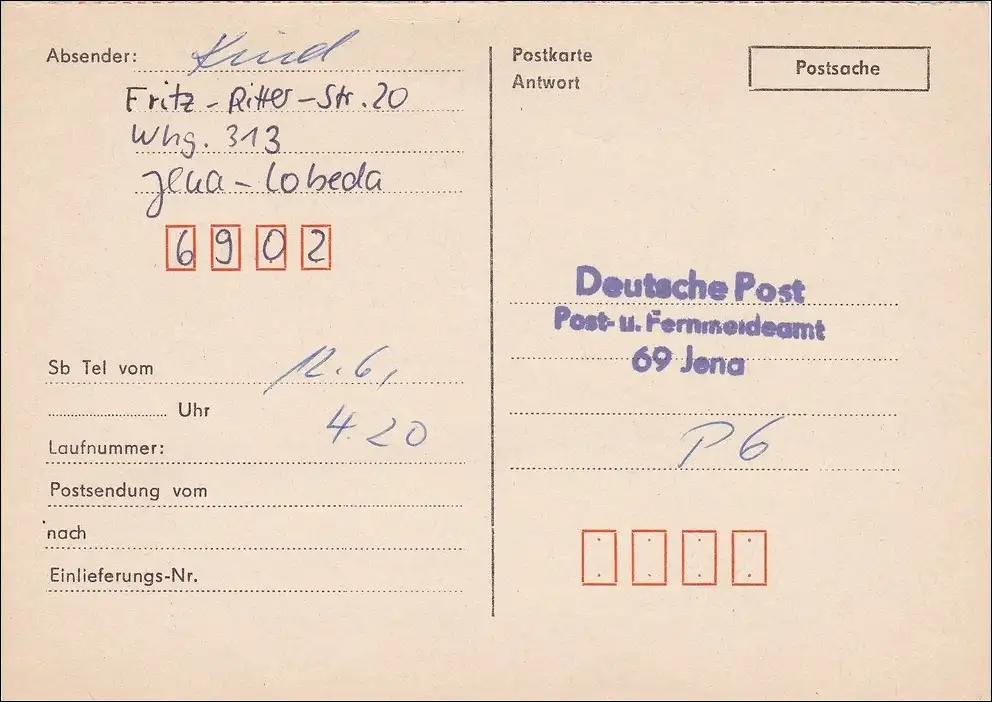 Absender: Kind
Fritz-Ritter-Str. 20
Whg. 313
Jena-Lobeda
6902
Sb Tel vom 12.6.
Uhr
4 20
Laufnummer:
Postsendung vom
nach
Einlieferungs-Nr.
Postkarte
Antwort
Postsache
Deutsche Post
Post- u. Fernmeldeamt
69 Jena
P6